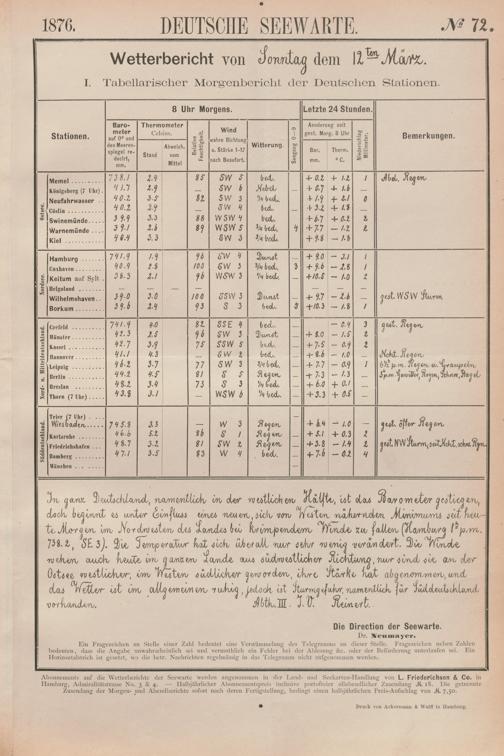 1876. DEUTSCHE SEEWARTE. № 72.
Wetterbericht von Sonntag dem 12ten März.
I. Tabellarischer Morgenbericht der Deutschen Stationen.
Stationen. 8 Uhr Morgens. Letzte 24 Stunden. Bemerkungen.
Barometer auf 0° und den Meeresspiegel redecirt, mm. Thermometer Celsius. Stand Abweich. vom Mittel Relative Feuchtigkeit. Wind wahre Richtung u. Stärke 1-12 nach Beaufort. Witterung. Seegang 0—9 Aenderung seit gestr. Morg. 8 Uhr Bar. mm. Therm. °C. Niederschlag Millimeter.
Ostsee.
Memel 738.1 2.9 85 SW 5 bed. + 0.2 + 1.2 1 Abd. Regen
Königsberg (7 Uhr) 41.7 2.9 SW 6 Nebel + 0.7 + 1.6
Neufahrwasser 40.2 3.5 82 SW 3 ¾ bed + 1.9 + 2.1 0
Cöslin 40.2 3.9 SW 4 bed + 3.2 + 1.8
Swinemünde 39.9 3.3 88 WSW 4 bed. + 6.7 + 0.2 2
Warnemünde 39.1 2.6 89 WSW 5 ¾ bed. 4 + 7.7 − 1.2 2
Kiel 40.4 3.3 SW 3 ¾ bed. + 9.8 − 1.8
Nordsee.
Hamburg 741.9 1.9 96 SW 4 Dunst + 9.0 − 3.1 1
Cuxhaven 40.9 2.5 100 SW 3 ¾ bed. 3 + 9.6 − 2.8 1
Keitum auf Sylt 38.3 2.1 96 WSW 3 ¾ bed. + 10.5 − 1.0 2
Helgoland
Wilhelmshaven 39.0 3.0 100 SSW 3 Dunst + 9.7 − 2.6 gest. WSW Sturm
Borkum 39.6 2.4 93 S 3 bed. 3 + 10.3 − 1.8 1
Nord- u. Mitteldeutschland.
Crefeld 741.9 4.0 82 SSE 4 bed. − 0.9 3 gest. Regen
Münster 42.3 2.5 96 SW 3 Dunst + 8.0 − 1.5 2
Kassel 42.7 3.9 75 SSW 5 bed. + 7.5 − 0.9 2
Hannover 41.1 4.3 SW 2 bed. + 8.6 − 1.0 Ncht. Regen
Leipzig 46.2 3.7 77 SW 3 ¼ bed. + 7.7 − 0.9 1
Berlin 44.2 4.5 81 S 5 Regen + 7.3 − 1.3
Breslau 48.2 3.4 73 S 3 ¼ bed + 6.0 + 0.1
Thorn (7 Uhr) 43.8 3.1 WSW 6 ¼ bed. + 3.3 + 0.5
Süddeutschland.
Trier (7 Uhr)
Wiesbaden 745.8 3.3 W 3 Regen + 6.4 − 1.0 gest. öfter Regen
Karlsruhe 46.6 5.2 86 S 1 Regen + 5.1 + 0.3 2
Friedrichshafen 48.7 3.2 81 SW 2 Regen + 3.8 − 1.4 2
Bamberg 47.1 3.5 83 W 4 bed. + 7.6 − 0.2 4
München
In ganz Deutschland, namentlich in der westlichen Hälfte, ist das Barometer gestiegen,
doch beginnt es unter Einfluss eines neuen, sich von Westen nähernden Minimums seit heu-
te Morgen im Nordwesten des Landes bei krimpendem Winde zu fallen (Hamburg 1h p.m.
738.2, SE 3). Die Temperatur hat sich überall nur sehr wenig verändert. Die Winde
wehen auch heute im ganzen Lande aus südwestlicher Richtung, nur sind sie an der
Ostsee westlicher, im Westen südlicher geworden, ihre Stärke hat abgenommen, und
das Wetter ist im allgemeinen ruhig, jedoch ist Sturmgefahr, namentlich für Süddeutschland
vorhanden. Abth. III. I. V. Reinert.
Die Direction der Seewarte.
Dr. Neumayer.
Ein Fragezeichen an Stelle einer Zahl bedeutet eine Verstümmelung des Telegramms an dieser Stelle. Fragezeichen neben Zahlen
bedeuten, dass die Angabe unwahrscheinlich sei und vermuthlich ein Fehler bei der Ablesung &c. oder der Beförderung unterlaufen sei. Ein
Horizontalstrich ist gesetzt, wo die betr. Nachrichten regelmässig in das Telegramm nicht aufgenommen werden.
Abonnements auf die Wetterberichte der Seewarte werden angenommen in der Land- und Seekarten-Handlung von L. Friederichsen & Co. in
Hamburg, Admiralitätstrasse No. 3 & 4. — Halbjährlicher Abonnementspreis inclusive portofreier allabendlicher Zusendung ℳ 18. Die getrennte
Zusendung der Morgen- und Abendberichte sofort nach deren Fertigstellung, bedingt einen halbjährlichen Preis-Aufschlag von ℳ 7,50.
Druck von Ackermann & Wulff in Hamburg.